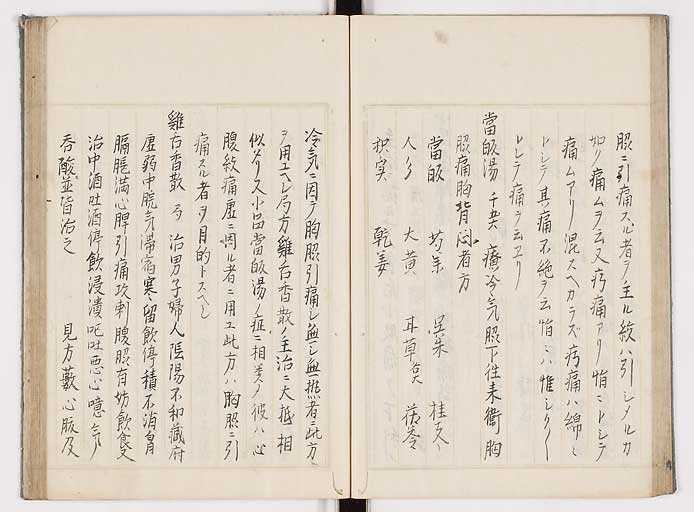 脇ニ引痛スル者ヲ主ル紋ハ引シメルカ
如ク痛ムヲ云又㽲痛アリ悁ニトシテ
痛ムアリ混スヘカラズ㽲痛ハ綿ニ
トシテ其痛不絶ヲ云悁ニハ惟シク〱
トシテ痛ヲ云ヱリ
當皈湯 千金 療冷気脇下往来衝胸
膈痛胸背悶者方
當皈 芍薬 呉茱 桂支
人参 大黄 甘草 茯苓
枳実 乾姜
冷気ニ因テ胸脇引痛シ血シ血𤍠者ニ此方
ヲ用ユヘシ局方雞舌香散ノ主治ニ大抵相
似タリ又小品當皈湯ノ症ニ相類ス彼ハ心
腹紋痛虚ニ因ル者ニ用ユ此方ハ胸脇ニ引
痛スル者ヲ目的トスヘシ
雞舌香散 局 治男子婦人陰陽不和藏府
虚弱中脘气滞宿寒留飲停積不消胃
膈脹満心脾引痛攻刺腹脇有妨飲食又
治中酒吐酒停飲浸漬呕吐悪心噫气
吞酸並皆治之 見方藪心腹及